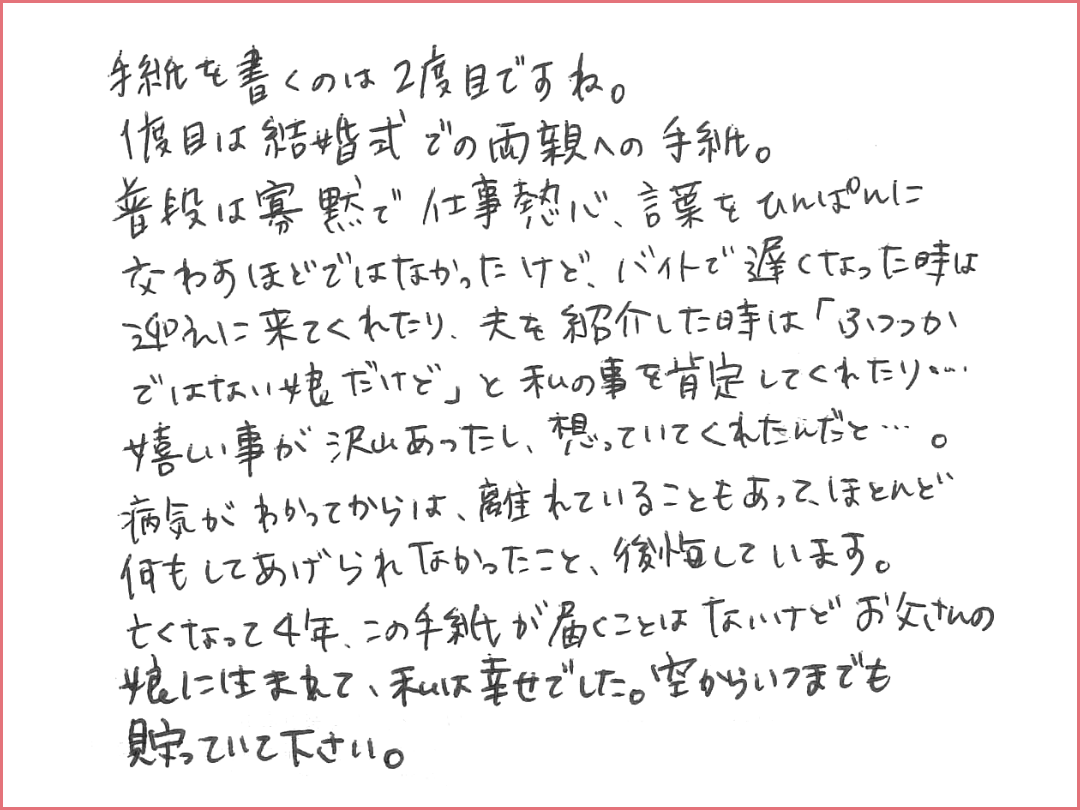 手紙を書くのは2度目ですね。
1度目は結婚式での両親への手紙。
普段は寡黙で仕事熱心、言葉をひんぱんに
交わすほどではなかったけど、バイトで遅くなった時は
迎えに来てくれたり、夫を紹介した時は「ふつつか
ではない娘だけど」と私の事を肯定してくれたり…
嬉しい事が沢山あったし、想っていてくれたんだと…。
病気がわかってからは、離れていることもあって、ほとんど
何もしてあげられなかったこと、後悔しています。
亡くなって4年、この手紙が届くことはないけどお父さんの
娘に生まれて、私は幸せでした。空からいつまでも
貯っていて下さい。